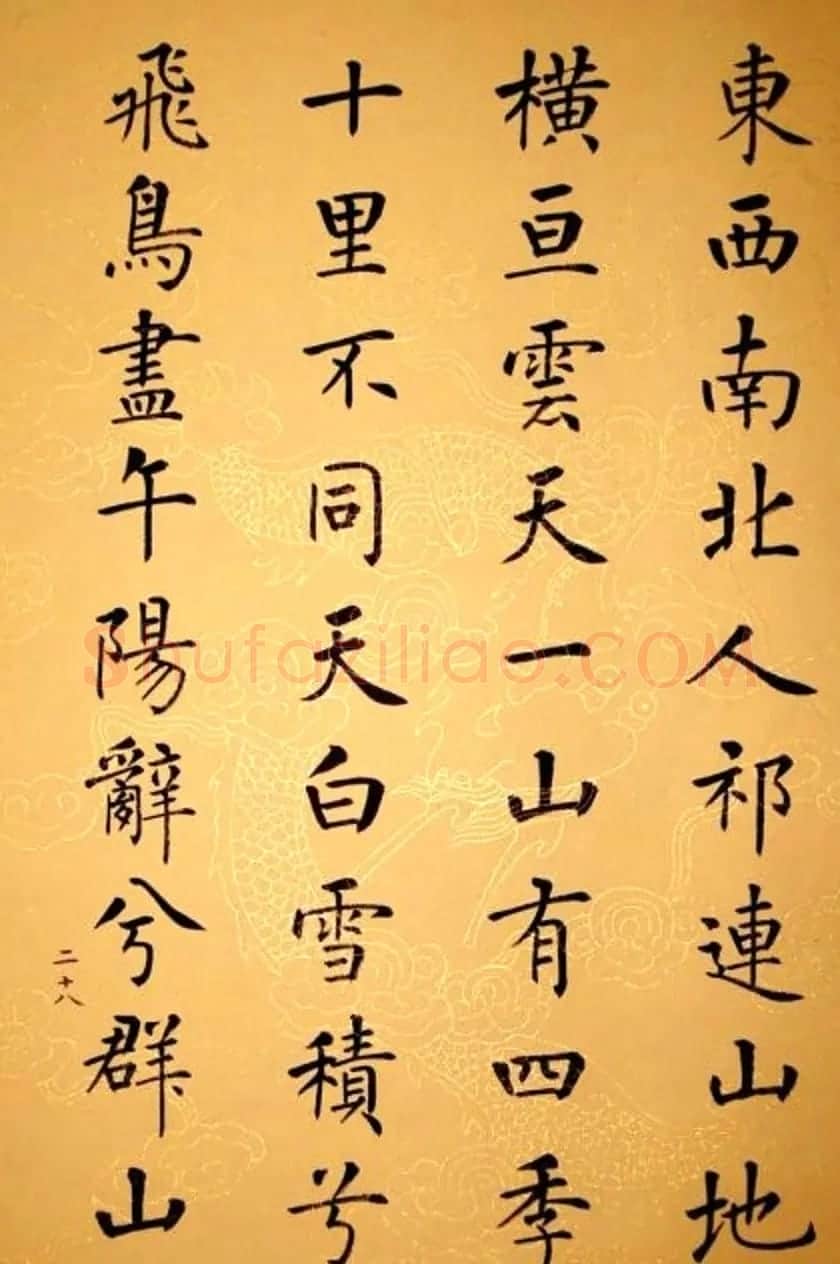 東西南北人祁連山地
橫亘雲天一山有四季
十里不同天白雪積兮
飛鳥盡午陽辭兮群山
二十八
Shufaziliao.COM